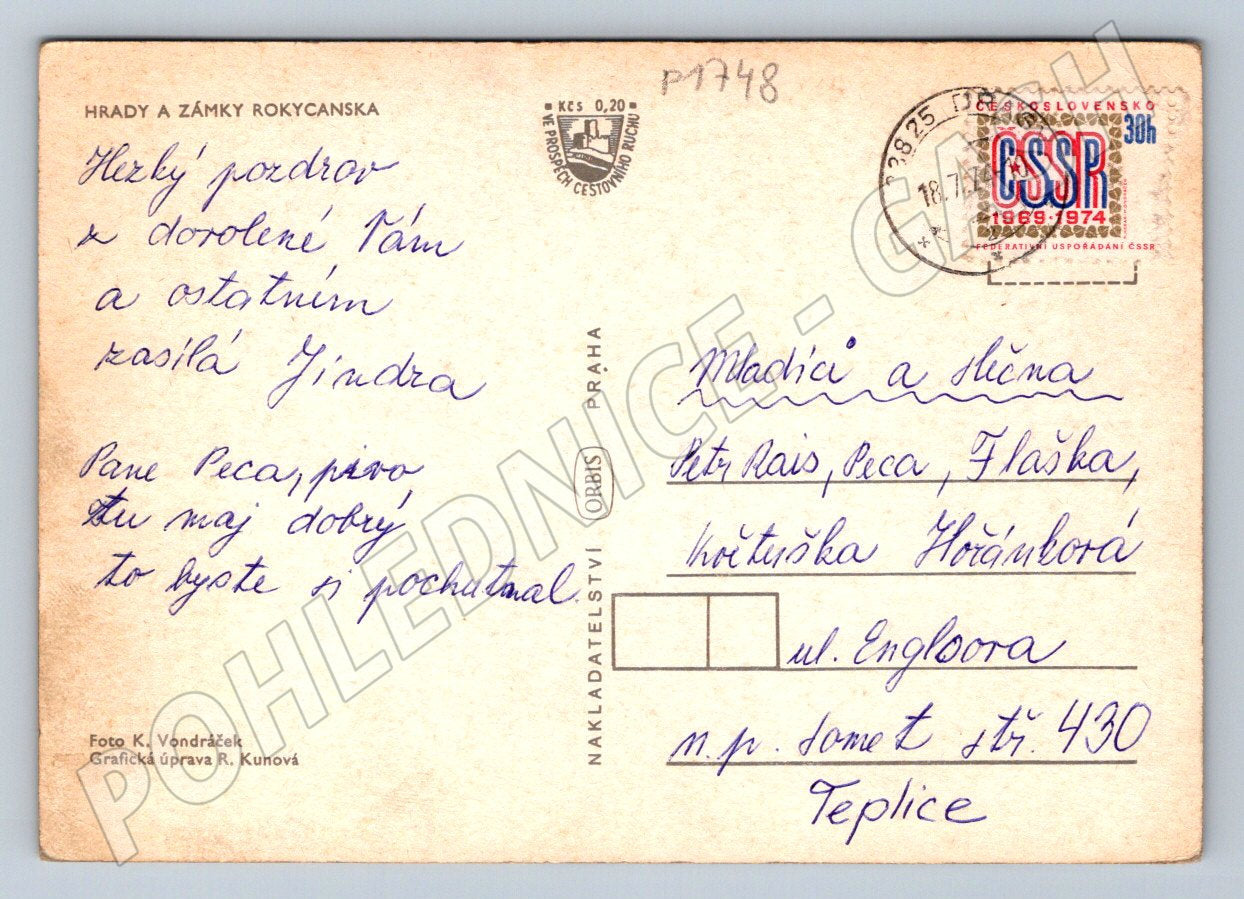 P1748
HRADY A ZÁMKY ROKYCANSKA
KČS 0,20
VE PROSPĚCH CESTOVNÍHO RUCHU
ČESKOSLOVENSKO
30h
ČSSR
1969-1974
FEDERATIVNÍ USPOŘÁDÁNÍ ČSSR
18.7.74
Hezký pozdrav
z dovolené Vám
a ostatním
zasílá Jindra
Pane Peca, pivo
tu maj dobrý
to byste si pochutnal.
Foto K. Vondráček
Grafická úprava R. Kunová
NAKLADATELSTVÍ ORBIS PRAHA
Mládíci a slečna
Petr Rais, Peca, Flaška,
Květuška Hořánková
ul. Englsova
n.p. Somet stř. 430
Teplice
POHLEDNICE -